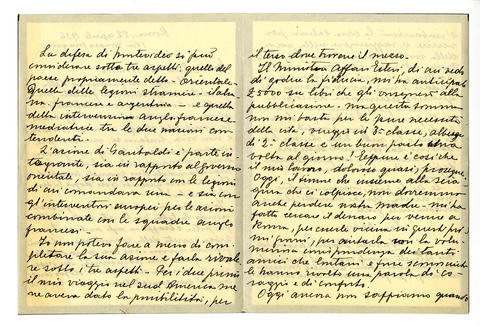 La difesa di Montevideo si può
considerare sotto tre aspetti: quello del
paese propriamente detto - Orientale -
Quello delle legioni straniere - italia
na francese e argentina - e quello
della intervenzione anglo francese
mediatrice tra le due nazioni con
tendenti.
L'azione di Garibaldi è parte in
tegrante, sia in rapporto al governo
orientale, sia in rapporto con le legioni
di cui comandava una - e sia con
gl'interventori europei per le azioni
combinate con le squadre anglo
francesi -
Io non potevo fare a meno di com
pletare la sua azione e farla rivivere
re sotto i tre aspetti - Per i due primi
il mio viaggio nel sud America me
ne aveva dato la possibilità, per
il terzo dove trovare il nesso.
Il Ministro Affari Esteri, di cui credo
di godere la fiducia, mi ha anticipato
£5000 su libri che gli consegnerò alla
pubblicazione - ma questa somma
non mi basta per le pure necessità
della vita, viaggio in 3ª classe, albergo
di 2ª classe e un buon pasto una
volta al giorno! Eppure è così che
il mio lavoro, doloroso quasi, prosegue.
Oggi, l'inverno che insieme alle
che ci colpisce, non dovremmo
anche perdere nostra madre - mi ha
fatto cercare il denaro per venire a
Roma, per esserle vicino in questi pri
mi giorni, per aiutarla con la volu
minosa corrispondenza dei tanti
amici che lontani e pure sconosciuti
le hanno rivolto una parola di co
raggio e di conforto.
Oggi ancora non sappiamo quando